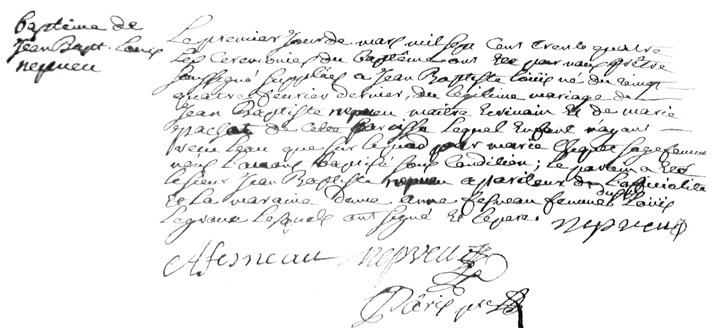 Baptême de
Jean Bapt. Louis
nepveu
Le premier Jour de mars mil sept cent trente quatre
Les Ceremonies du Baptême ont Eté par nous prêtre
soussigné supplées a Jean Baptiste Louis né du vingt
quatre fevrier dernier, du legitime mariage de
Jean Baptiste nepveu maitre Ecrivain et de marie
pachot de cette paroisse lequel Enfant ayant
receu Leau sur le par marie sage femme
nous L'avons baptisé sous Condition; Le parain a Eté
le sieur Jean Baptiste nepveu apariteur de L'officialité
Et La maraine dame anne fesneau femme de Louis
Legrand Lesquels ont signé Et Le pere nepveu
A fesneau nepveu
Páris ptre